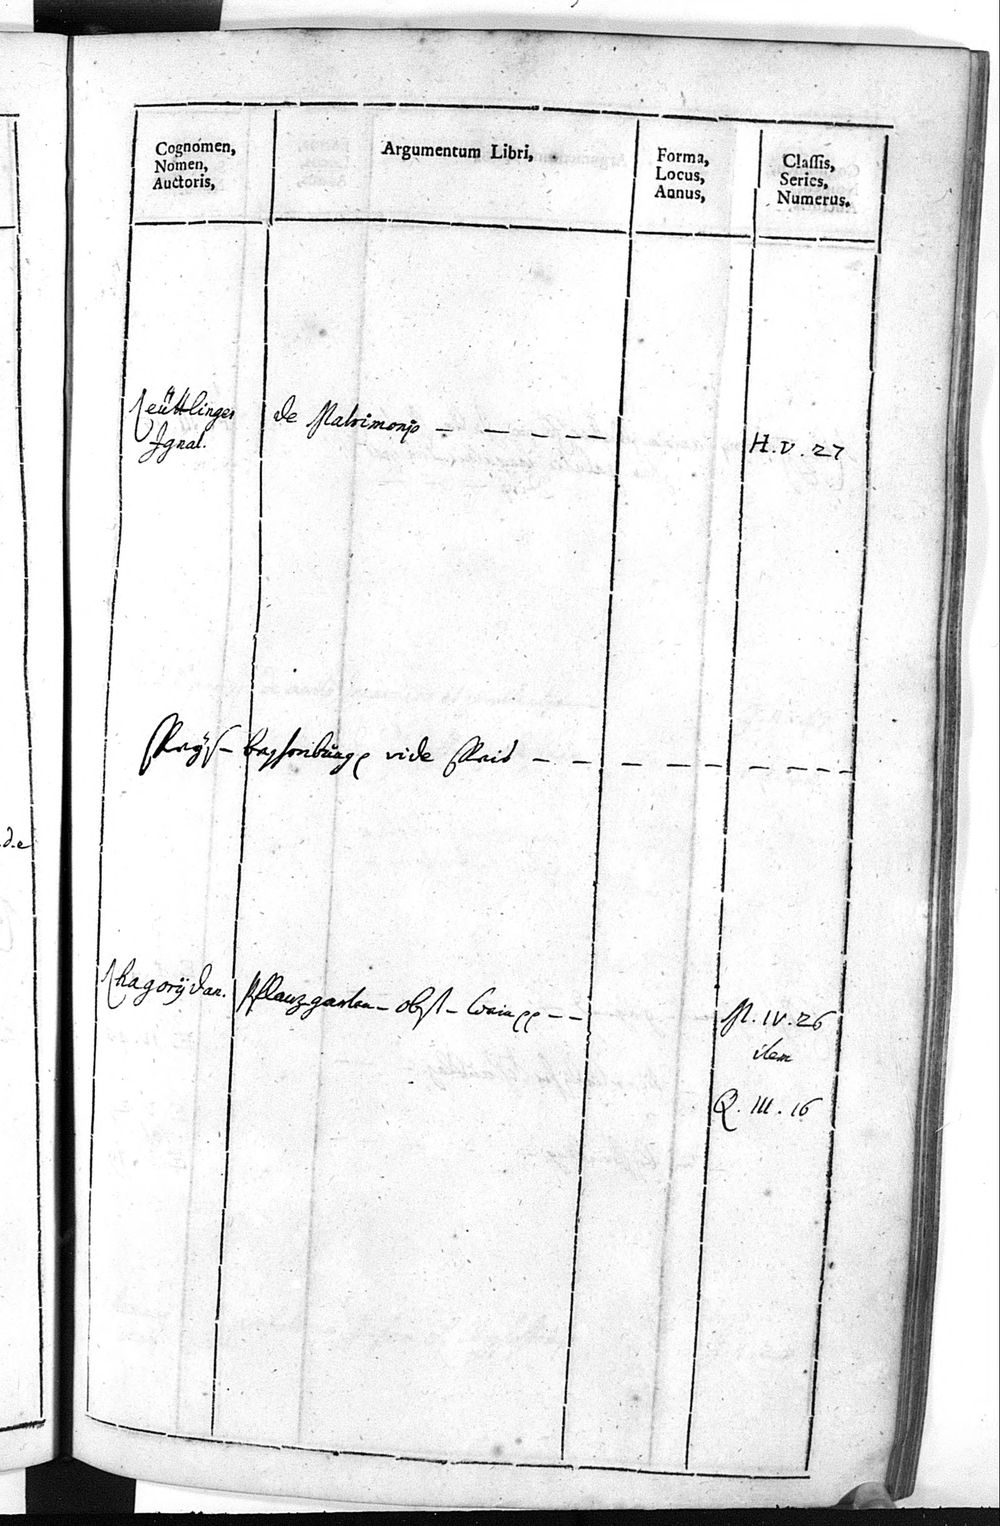 Cognomen,
Nomen,
Auctoris,
Argumentum Libri,
Forma,
Locus,
Annus,
Classis,
Series,
Numerus.
Reüttlinger
Ignat.
de Matrimonio - - - - -
H. V. 27
vide - - - - - - - - -
Rhagorÿ Dan.
Pflanzgarten - obst -
M. IV. 26
item
Q. III. 16
d.e